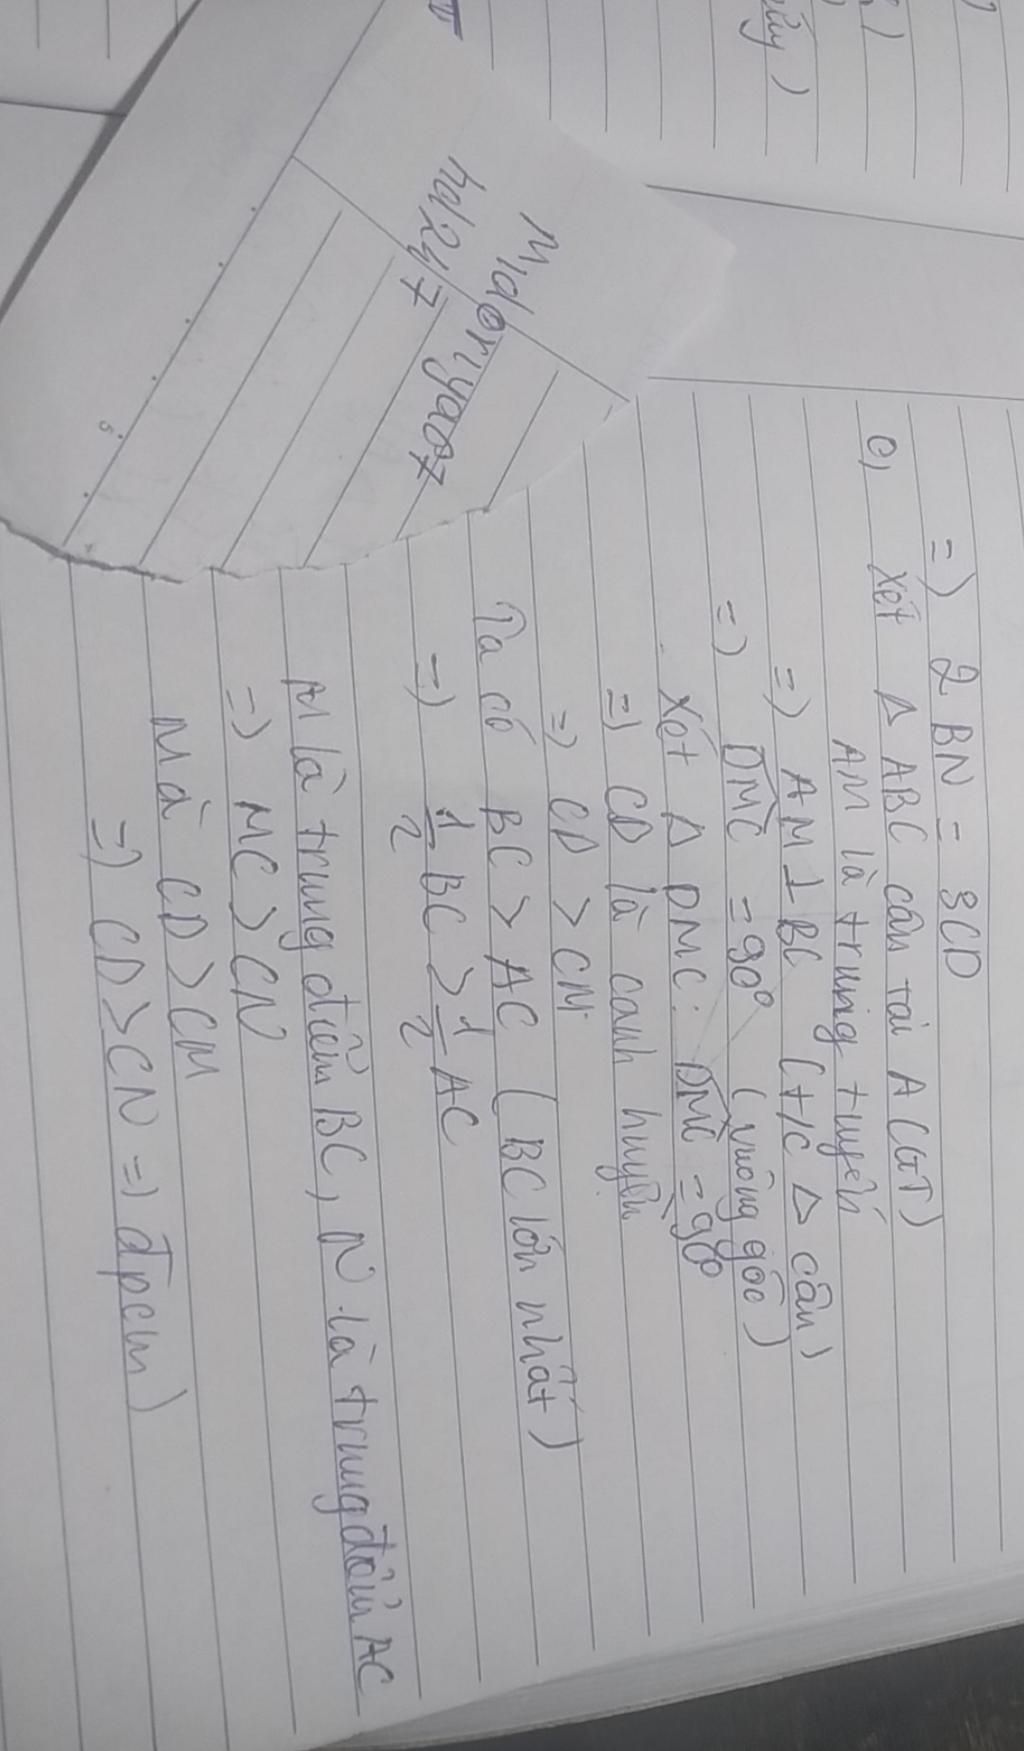 ủy)
Midoriya07
hd247
=) 2 BN = 3CD
c, Xét Δ ABC cân tại A (GT)
AM là trung tuyến
=) AM ⊥ BC (t/c Δ cân)
=) DMC = 90° (vuông góc)
Xét Δ DMC: DMC = 90°
=) CD là cạnh huyền
=) CD > CM
Ta có BC > AC (BC lớn nhất)
=) 1/2 BC > 1/2 AC
M là trung điểm BC, N là trung điểm AC
=) MC > CN
Mà CD > CM
=) CD > CN =) đpcm)